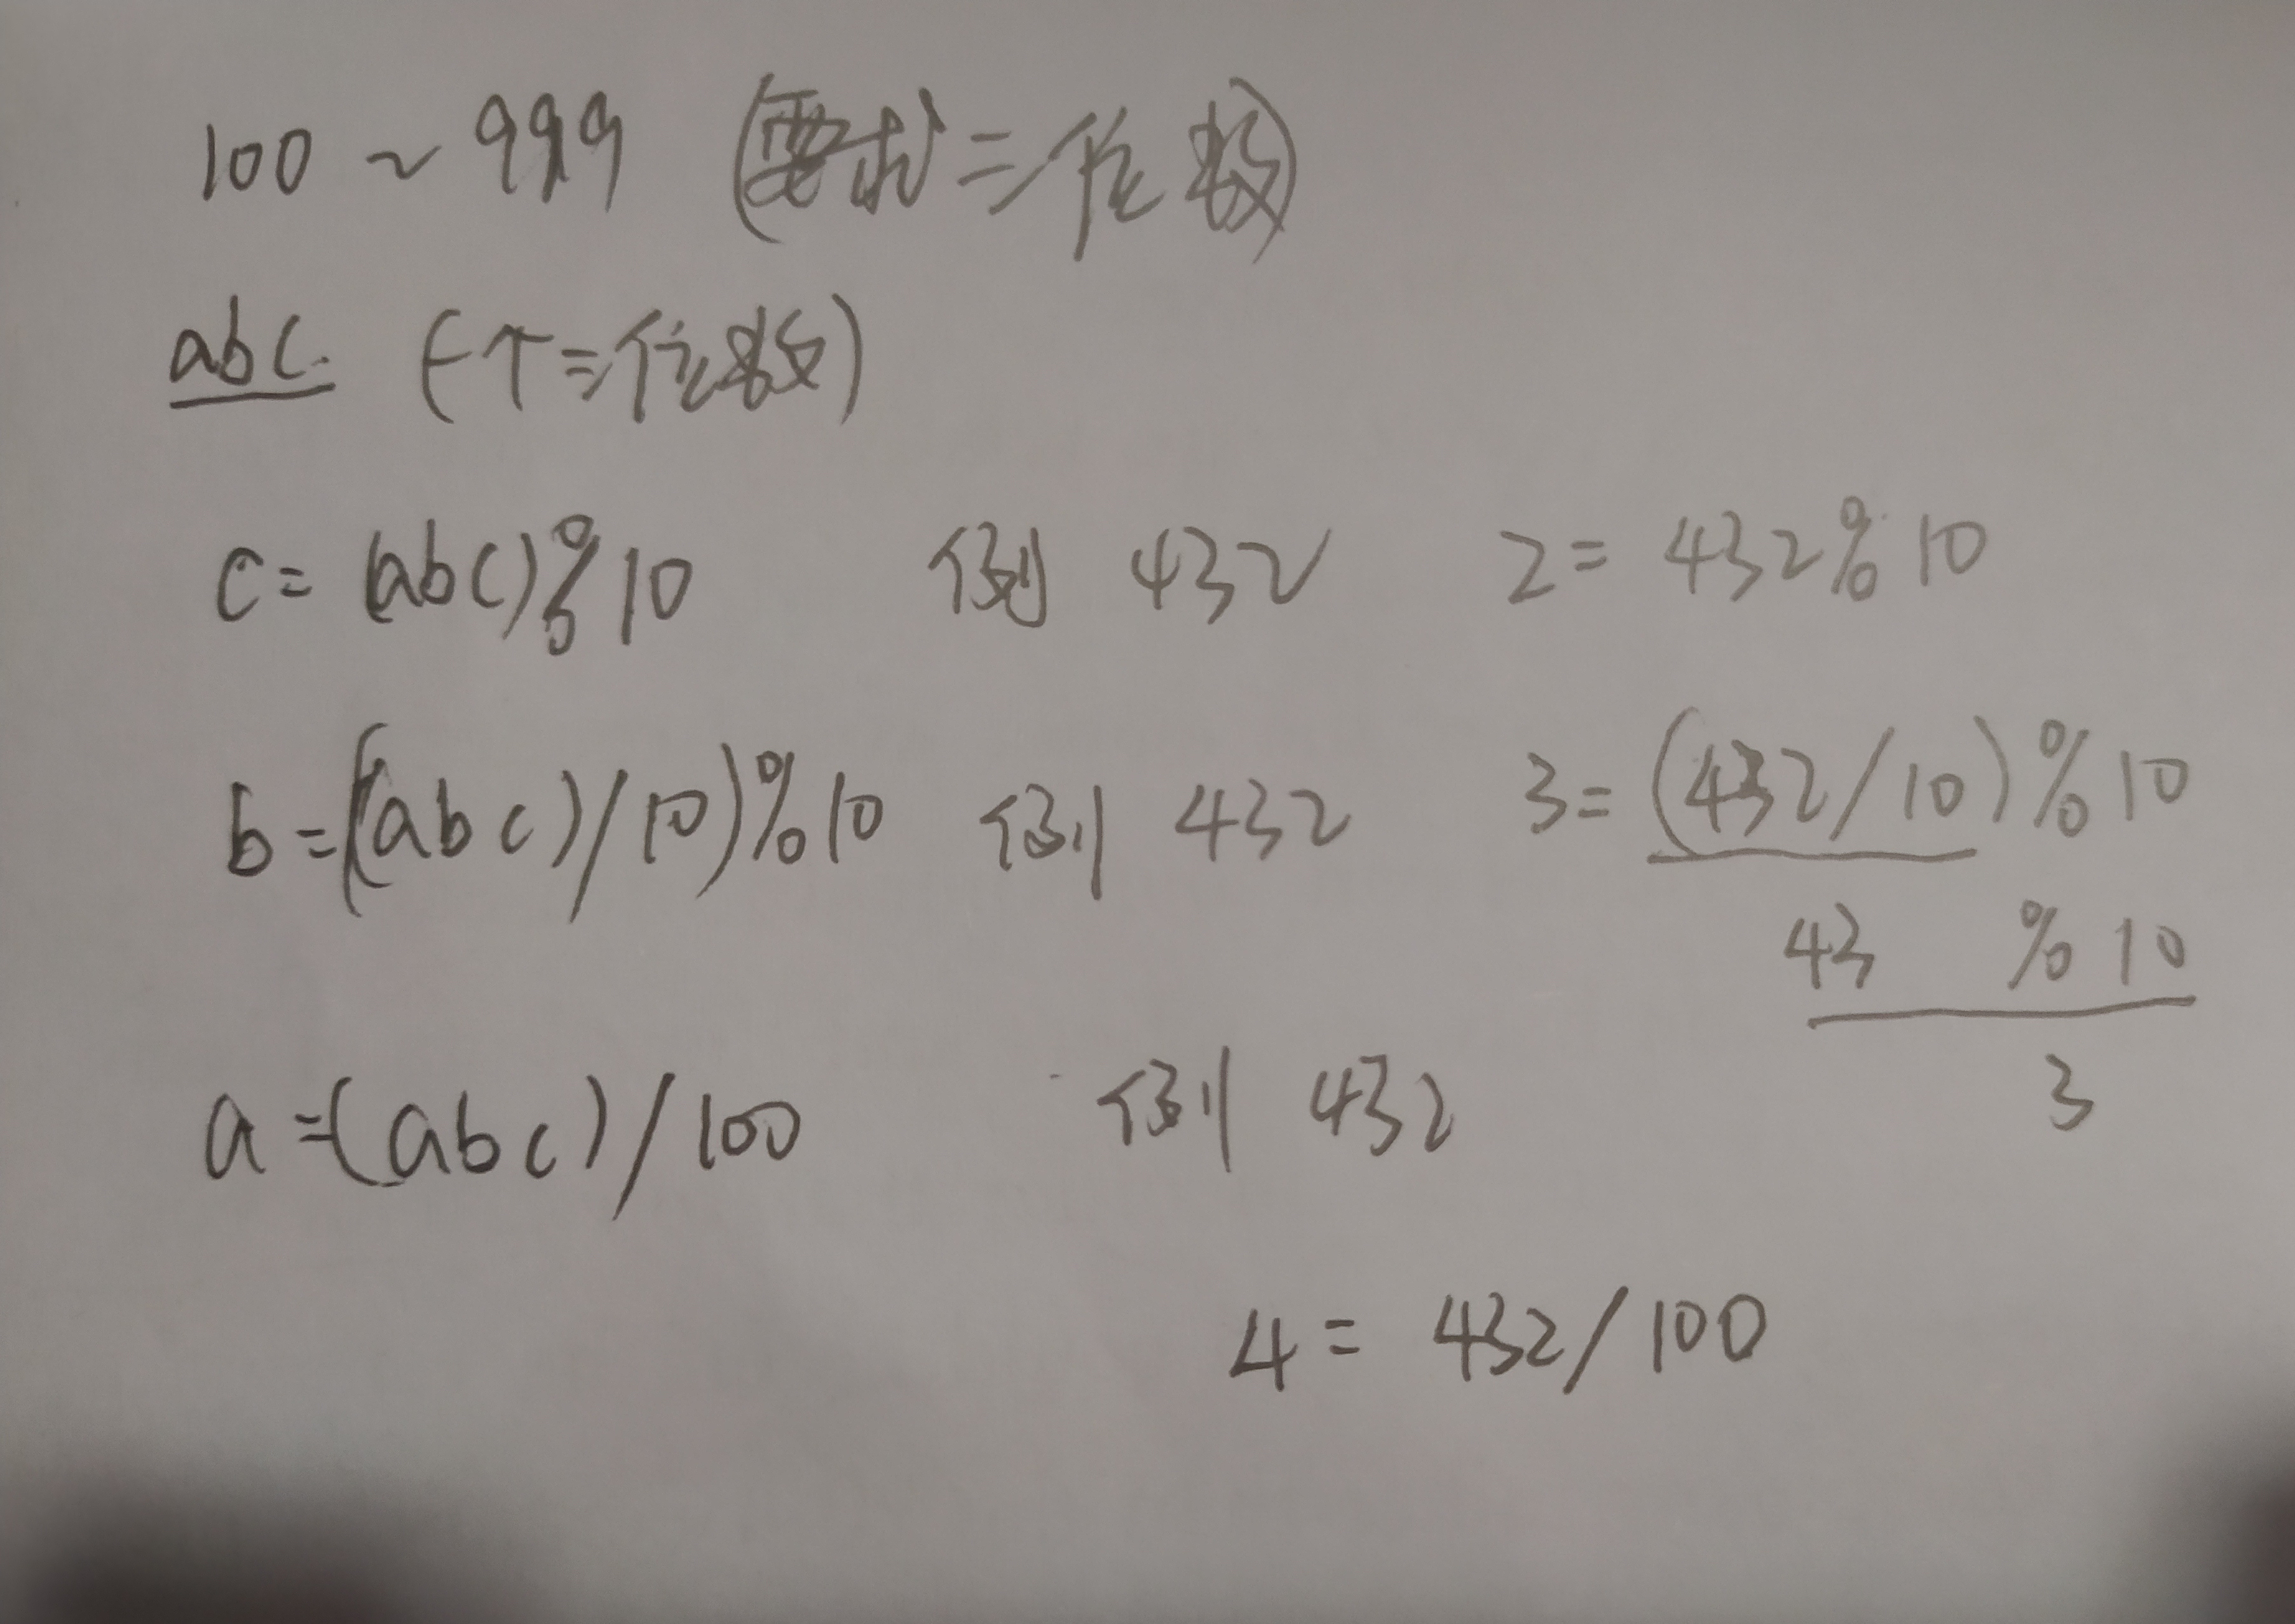 100 ~ 999 (要求三位数)
abc (一个三位数)
c = (abc)%10 例 432 2 = 432%10
b = ((abc)/10)%10 例 432 3 = (432/10)%10
43 %10
3
a = (abc)/100 例 432
4 = 432/100